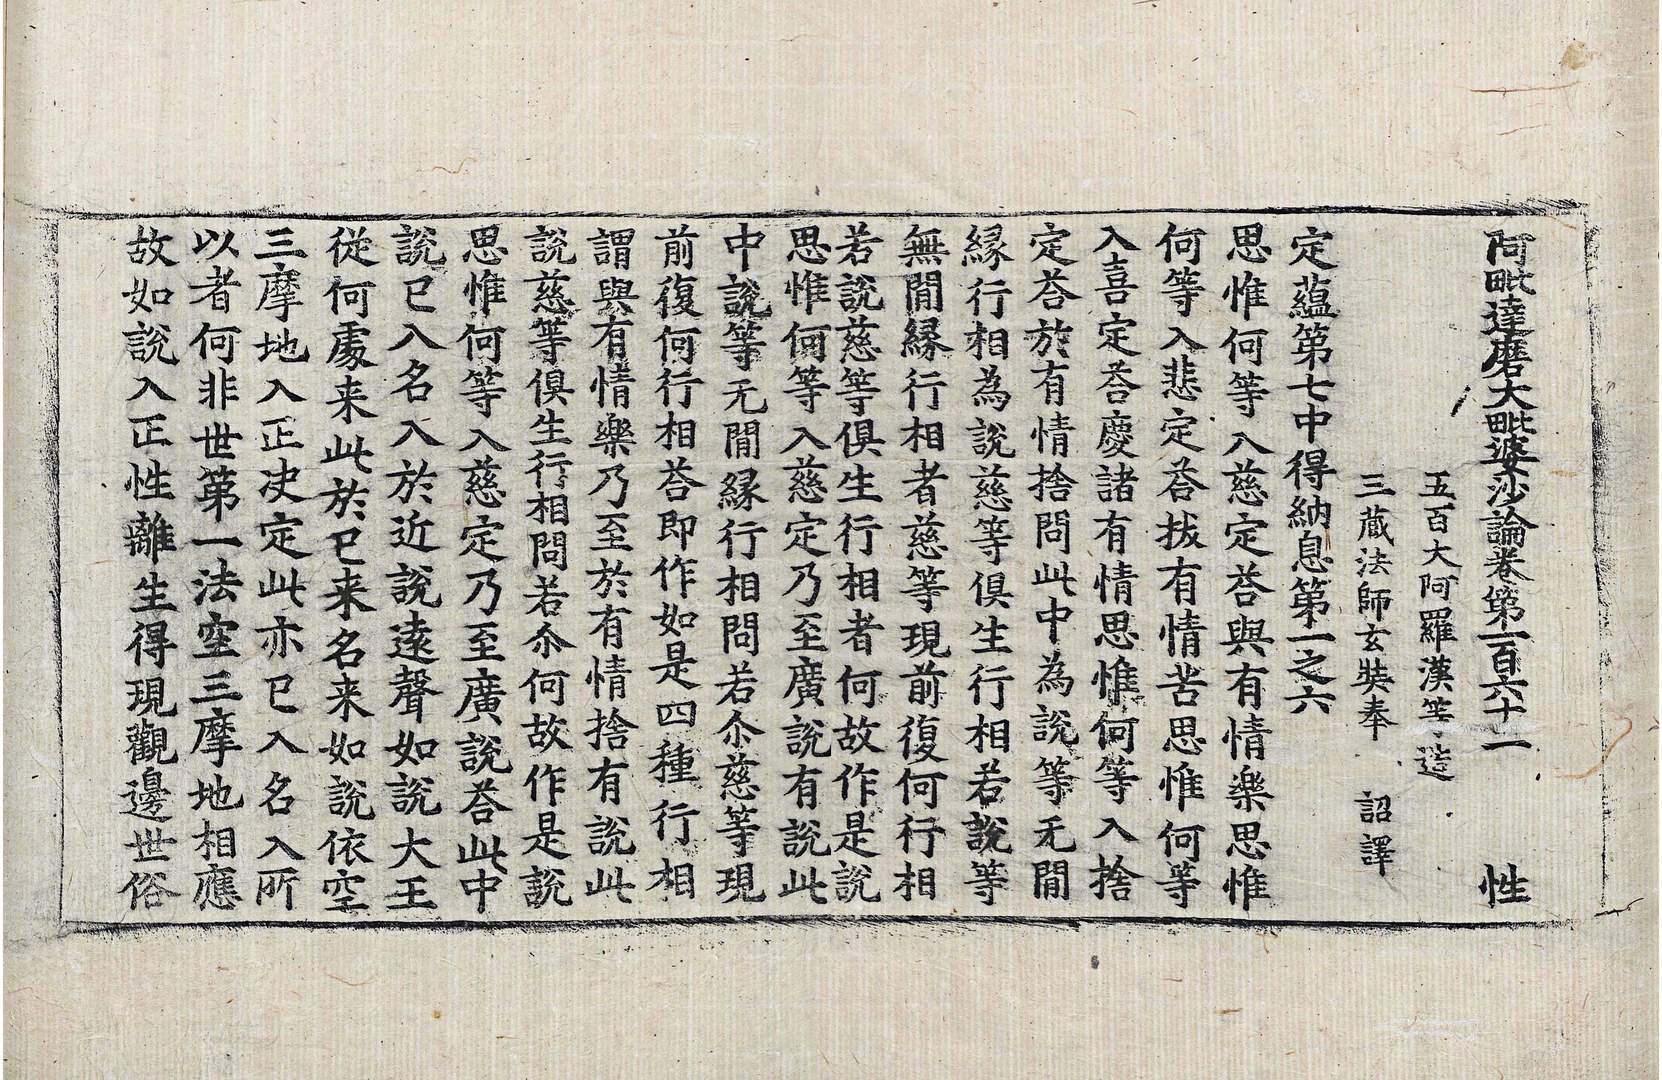 阿毗達磨大毗婆沙論卷第一百六十一 性
五百大阿羅漢等造
三藏法師玄奘奉 詔譯
定蘊第七中得納息第一之六
思惟何等入慈定荅與有情樂思惟
何等入悲定荅拔有情苦思惟何等
入喜定荅慶諸有情思惟何等入捨
定荅於有情捨問此中為說等无閒
縁行相為說慈等俱生行相若說等
無閒縁行相者慈等現前復何行相
若說慈等俱生行相者何故作是說
思惟何等入慈定乃至廣說有說此
中說等无閒縁行相問若尒慈等現
前復何行相荅即作如是四種行相
謂與有情樂乃至於有情捨有說此
說慈等俱生行相問若尒何故作是說
思惟何等入慈定乃至廣說荅此中
說已入名入於近說遠聲如說大王
從何處来此於已来名来如說依空
三摩地入正决定此亦已入名入所
以者何非世第一法空三摩地相應
故如說入正性離生得現觀邊世俗